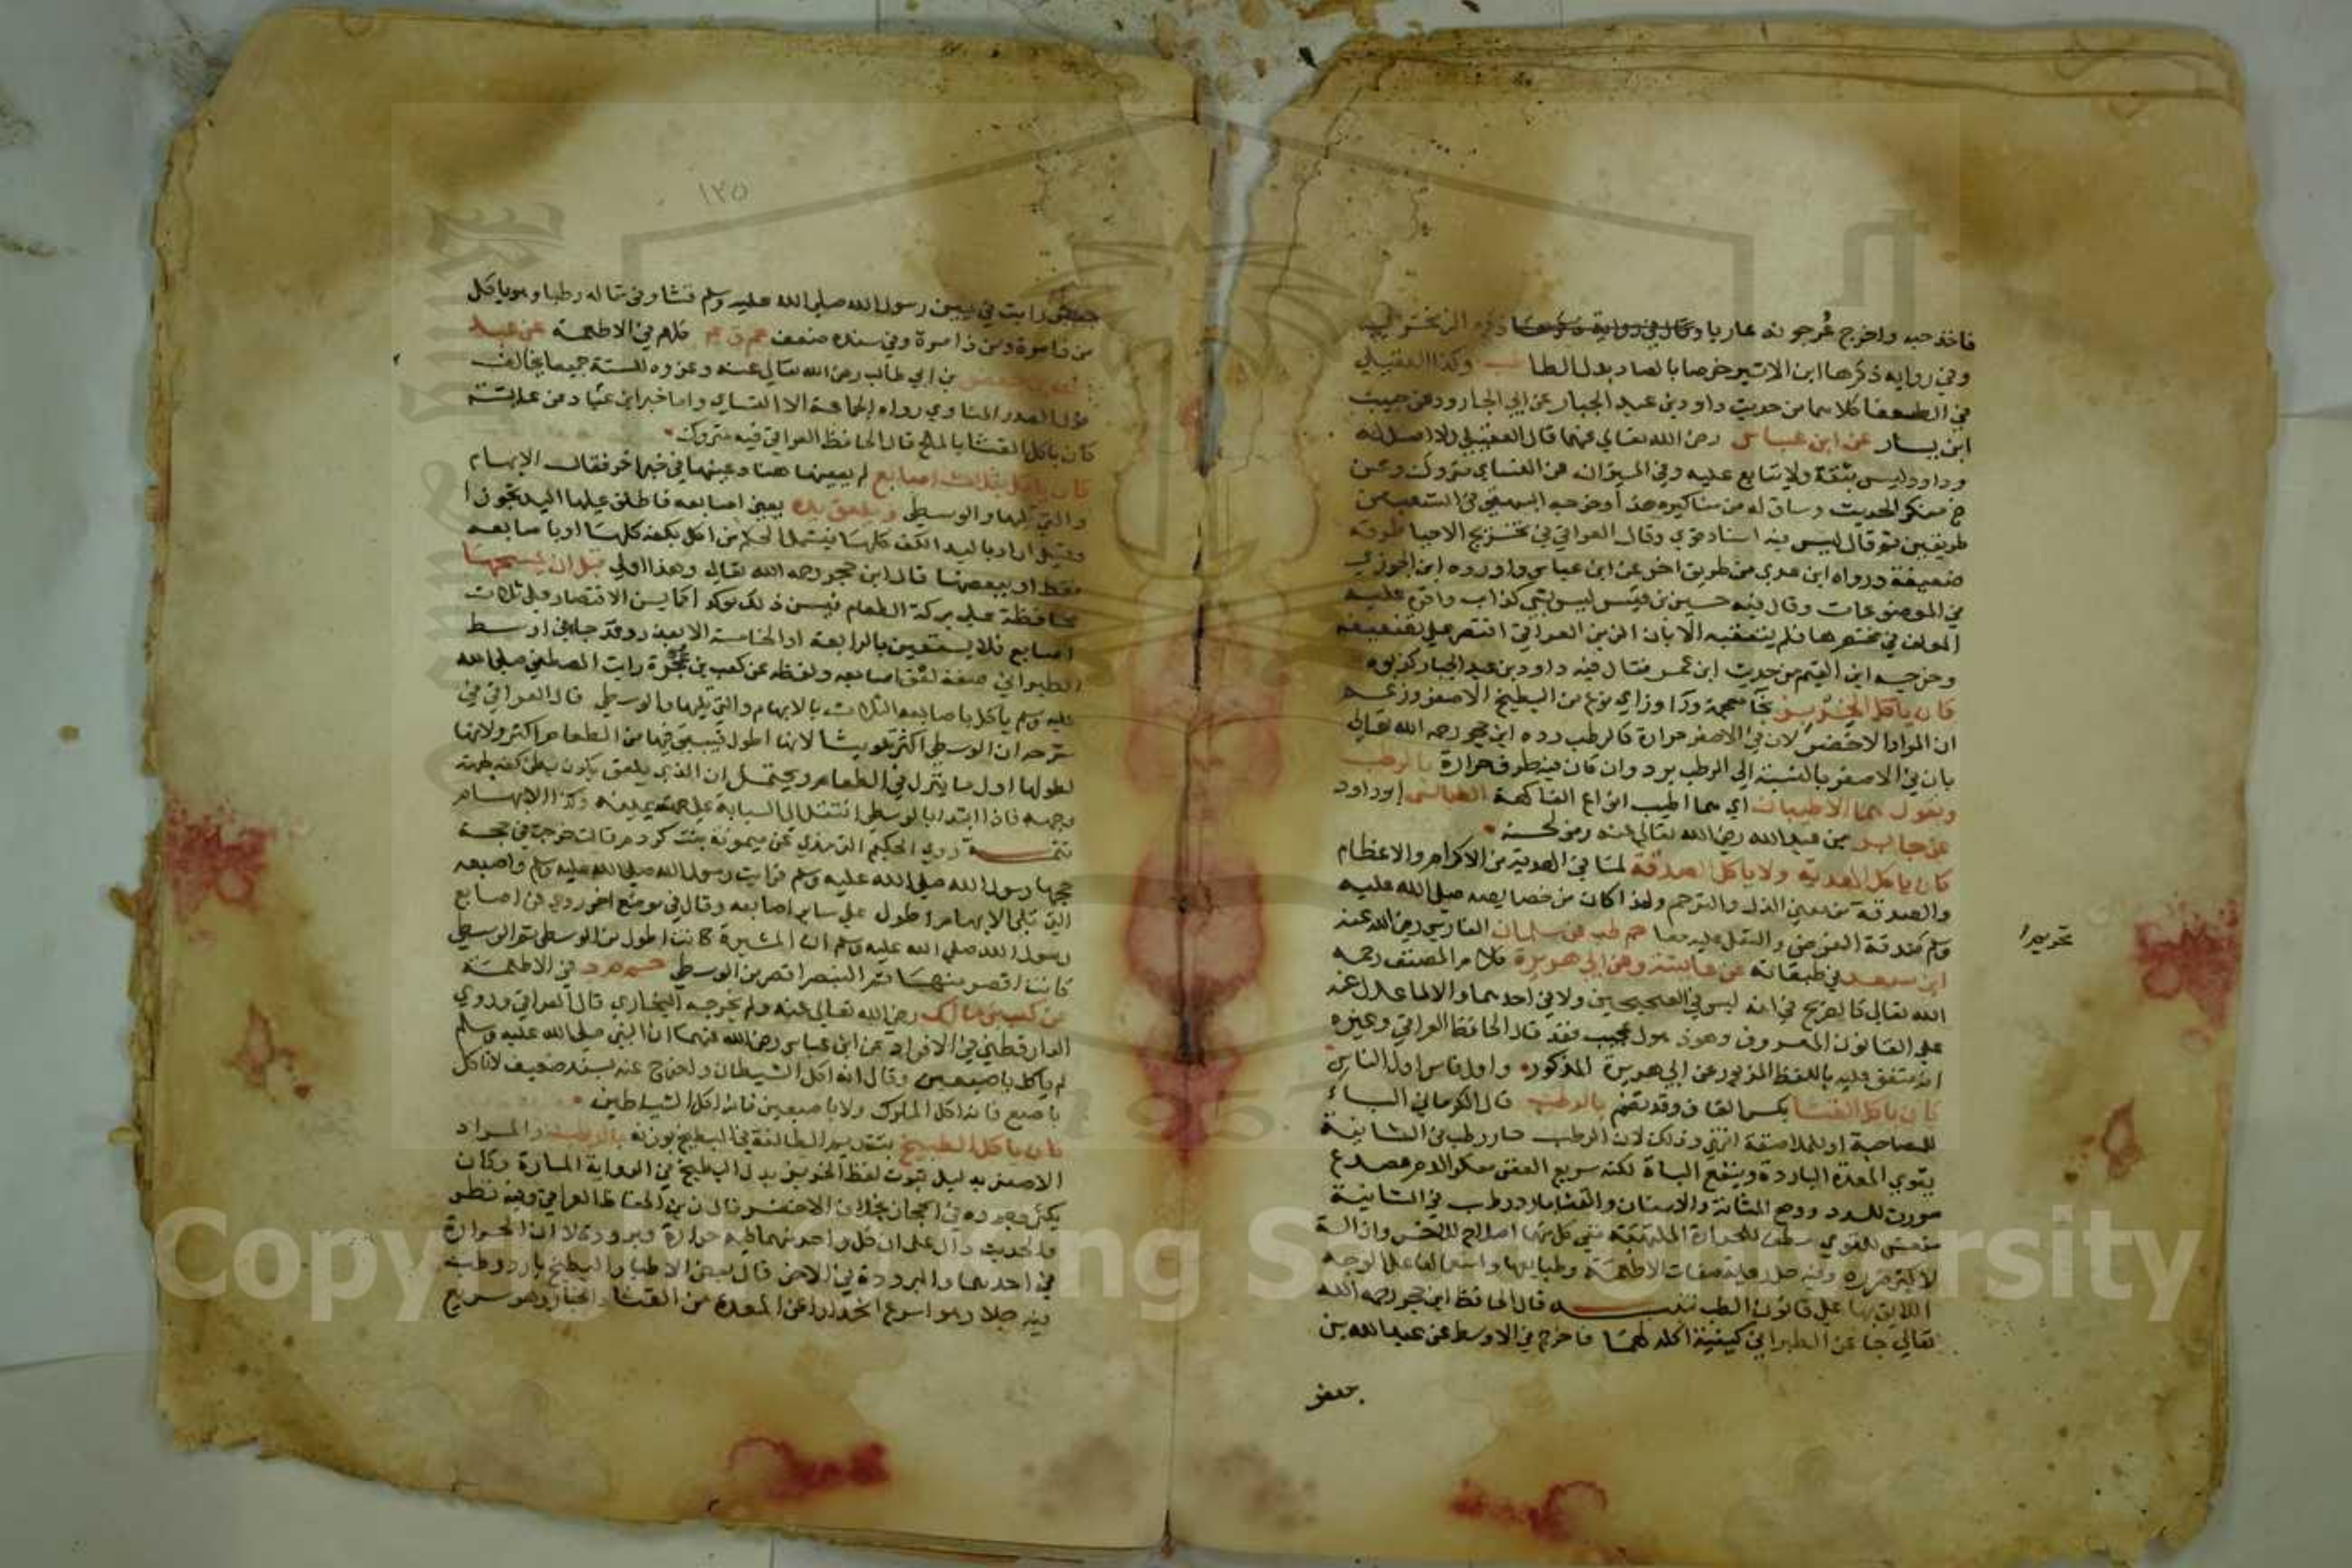 فاخذ حبه واخرج عُرجونه عاريا وكان في رواية ذكرها الزمخشري
وفي رواية ذكرها ابن الاثير خرصا بالصاد بدل الطا طب وكذا العقيلي
في الضعفا كلاهما من حديث داود بن عبد الجبار عن ابي الجارود عن حبيب
ابن يسار عن ابن عباس رضي الله تعالي عنهما قال العقيلي ولا اصل له
وداود ليس بثقة ولا يتابع عليه وفي الميزان عن النساي متروك وعن
خ منكر الحديث وساق له من مناكيره هذا وخرجه البيهقي في الشعب من
طريقين ثم قال ليس فيه اسناد قوي وقال العراقي في تخريج الاحيا طرقه
ضعيفة ورواه ابن عدي من طريق اخر عن ابن عباس واورده ابن الجوزي
في الموضوعات وقال فيه حسين بن قيس ليس بشي كذاب واقره عليه
المولف في مختصرها فلم يتعقبه الا بان الزين العراقي اقتصر علي تضعيفه
وخرجه ابن القيم من حديث ابن عمر فقال فيه داود بن عبد الجبار كذبوه
كان ياكل الخربز بخا معجمة ورا وزاي نوع من البطيخ الاصفر وزعم
ان المراد الاخضر لان في الاصفر حرارة كالرطب رده ابن حجر رحمه الله تعالي
بان في الاصفر بالنسبة الي الرطب برد وان كان فيه طرف حرارة بالرطب
ويقول هما الاطيبان اي هما اطيب انواع الفاكهة الطيالسي ابو داود
عن جابر بن عبد الله رضي الله تعالي عنه رمز لحسنه
كان ياكل الهدية ولا ياكل الصدقة لما في الهدية من الاكرام والاعظام
والصدقة من معني الذل والترحم ولهذا كان من خصايصه صلي الله عليه
وسلم صدقة الفرض والنفل عليه معا حم طب عن سلمان الفارسي رضي الله عنه
تحريم
ابن سعد في طبقاته عن عايشة وعن ابي هريرة كلام المصنف رحمه
الله تعالي كالصريح في انه ليس في الصحيحين ولا في احدهما والا لما عدل عنه
علي القانون المعروف وهو ذهول عجيب فقد قال الحافظ العراقي وغيره
انه متفق عليه باللفظ المزبور عن ابي هريرة المذكور واول ناس اول الناس
كان ياكل القثا بكسر القاف وقد تضم بالرطب قال الكرماني الباء
للمصاحبة او للملاصقة انتهي وذلك لان الرطب حار رطب في الثانية
يقوي المعدة الباردة وينفع الباة لكنه سريع العفن معكر للدم مصدع
مورث للسدد ووجع المثانة والاسنان والقثا بارد رطب في الثانية
منعش للقوي مطف للحرارة الملتهبة ففي كل منهما اصلاح للاخر وازالة
لاكثر ضرره وفيه حل رعاية صفات الاطعمة وطبايعها واستعمالها علي الوجه
اللايق بها علي قانون الطب تنبيه قال الحافظ ابن حجر رحمه الله
تعالي جا عن الطبراني كيفية اكله لهما فاخرج في الاوسط عن عبد الله بن
جعفر
١٢٥
جعفر رايت في يمين رسول الله صلي الله عليه وسلم قثا وفي شماله رطبا وهو ياكل
من ذا مرة ومن ذا مرة وفي سنده ضعف حم ق ع كلهم في الاطعمة عن عبد
الله بن جعفر بن ابي طالب رضي الله تعالي عنه وعزوه للستة جميعا يخالف
قول الصدر المناوي رواه الجماعة الا النساي واما خبر ابن عباد عن عايشة
كان ياكل القثا بالملح قال الحافظ العراقي فيه متروك
كان ياكل بثلاث اصابع لم يعينها هنا وعينها في خبر اخر فقال الابهام
والتي تليها والوسطي ويلعق يده يعني اصابعه فاطلق عليها اليد تجوزا
وقيل اراد باليد الكف كلها فيشمل الحكم من اكل بكفه كلها او باصابعه
فقط او ببعضها قال ابن حجر رحمه الله تعالي وهذا اولي قبل ان يمسحها
محافظة علي بركة الطعام فيسن ذلك موكدا كما يسن الاقتصار علي ثلاث
اصابع فلا يستعين بالرابعة او الخامسة الا بعذر وقد جا في اوسط
الطبراني صفة لعق اصابعه ولفظه عن كعب بن عجرة رايت المصطفي صلي الله
عليه وسلم ياكل باصابعه الثلاث بالابهام والتي تليها والوسطي قال العراقي في
شرحه ان الوسطي اكثر تلويثا لانها اطول فيبقي فيها من الطعام اكثر ولانها
لطولها اول ما ينزل في الطعام ويحتمل ان الذي يلعق يكون بطن كفه لجهة
وجهه فاذا ابتدا بالوسطي انتقل الي السبابة علي جهة يمينه وكذا الابهام
تتمة روي الحكيم الترمذي عن ميمونة بنت كردم قالت خرجت في حجة
حجها رسول الله صلي الله عليه وسلم فرايت رسول الله صلي الله عليه وسلم واصبعه
التي تلي الابهام اطول علي ساير اصابعه وقال في موضع اخر روي عن اصابع
رسول الله صلي الله عليه وسلم ان المشيرة كانت اطول من الوسطي ثم الوسطي
كانت اقصر منها ثم البنصر اقصر من الوسطي حم م د في الاطعمة
عن كعب بن مالك رضي الله تعالي عنه ولم يخرجه البخاري قال العراقي وروي
الدارقطني في الافراد عن ابن عباس رضي الله عنهما ان النبي صلي الله عليه وسلم
لم ياكل باصبعين وقال انه اكل الشيطان واخرج عنه بسند ضعيف لا تاكل
باصبع فانه اكل الملوك ولا باصبعين فانه اكل الشياطين
كان ياكل الطبيخ بتقديم الطا لغة في البطيخ بوزنه بالرطب والمراد
الاصفر بدليل ثبوت لفظ الخربز بدل البطيخ في الرواية المارة وكان
يكثر وجوده في الحجاز بخلاف الاخضر قال زين الحفاظ العراقي وفيه نظر
والحديث دال علي ان كل واحد منهما فيه حرارة وبرودة لان الحرارة
في احدهما والبرودة في الاخر قال بعض الاطبا والبطيخ بارد رطب
فيه جلا وهو اسرع انحدارا عن المعدة من القثا والخيار وهو سريع